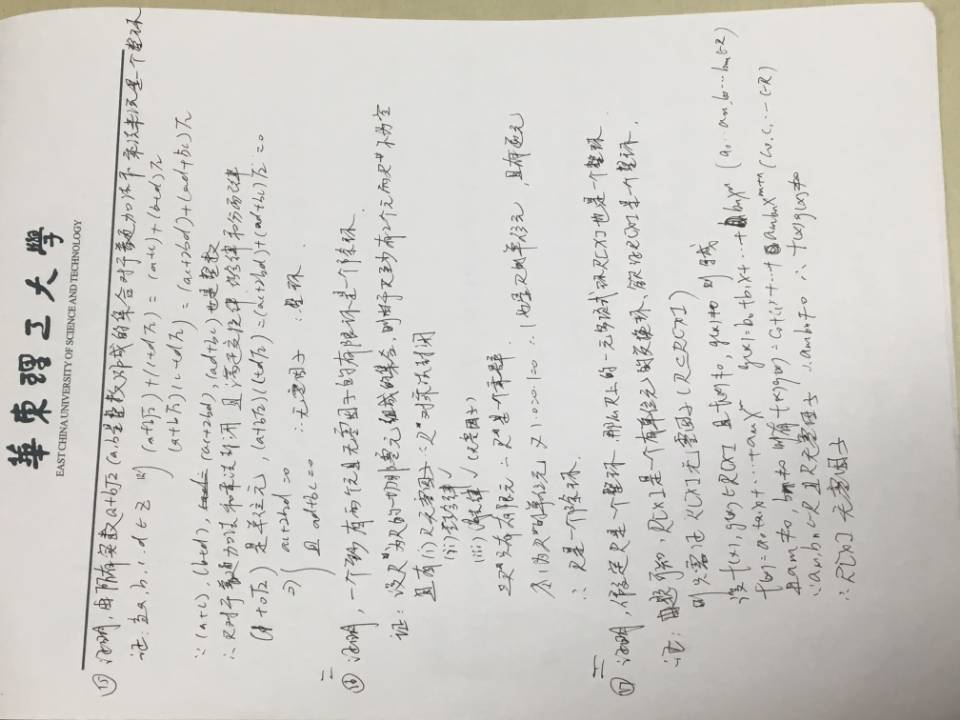 華東理工大學
EAST CHINA UNIVERSITY OF SCIENCE AND TECHNOLOGY
⑮ 证明,由所有实数a+b√2 (a,b是整数)作成的集合对于普通加法和乘法来说是一个整环
证:当a,b,c,d∈Z 则 (a+b√2)+(c+d√2)=(a+c)+(b+d)√2
(a+b√2)(c+d√2)=(ac+2bd)+(ad+bc)√2
∵(a+c),(b+d), (ac+2bd),(ad+bc)也是整数
∴R对于普通加法和乘法封闭 且满足交换律 结合律和分配律
(1+0√2)是单位元,(a+b√2)(c+d√2)=(ac+2bd)+(ad+bc)√2=0
⇒ { ac+2bd=0
且 ad+bc=0 ∴无零因子 ∴整环.
二
⑯ 证明,一个至少有两个元且无零因子的有限环是一个除环.
证:设R*为R的一切非零元组成的集合,则由于R至少有2个元而R*不为空
且有(i)R无零因子∴R*对乘法封闭
(ii)结合律✓
(iii)消去律✓(无零因子)
又R*只有有限元∴R*是一个乘群.
令1为R*的单位元 又1·0=0·1=0 ∴1也是R的单位元,且有逆元
∴R是一个除环.
二
⑰ 证明,假定R是一个整环,那么R上的一元多项式环R[x]也是一个整环
证:由题可知,R[x]是一个有单位元的交换环、欲证R[x]是一个整环.
则只需证R[x]无零因子(R⊆R[x])
设f(x),g(x)∈R[x] 且f(x)≠0,g(x)≠0 则
f(x)=a₀+a₁x+⋯+aₘxᵐ g(x)=b₀+b₁x+⋯+bₙxⁿ (a₀⋯aₘ,b₀⋯bₙ∈R)
且aₘ≠0,bₙ≠0 则有f(x)g(x)=c₀+c₁x+⋯+aₘbₙxᵐ⁺ⁿ (c₀,c₁⋯∈R)
∵aₘ,bₙ∈R且R无零因子 ∴aₘbₙ≠0 ∴f(x)g(x)≠0
∴R[x]无零因子